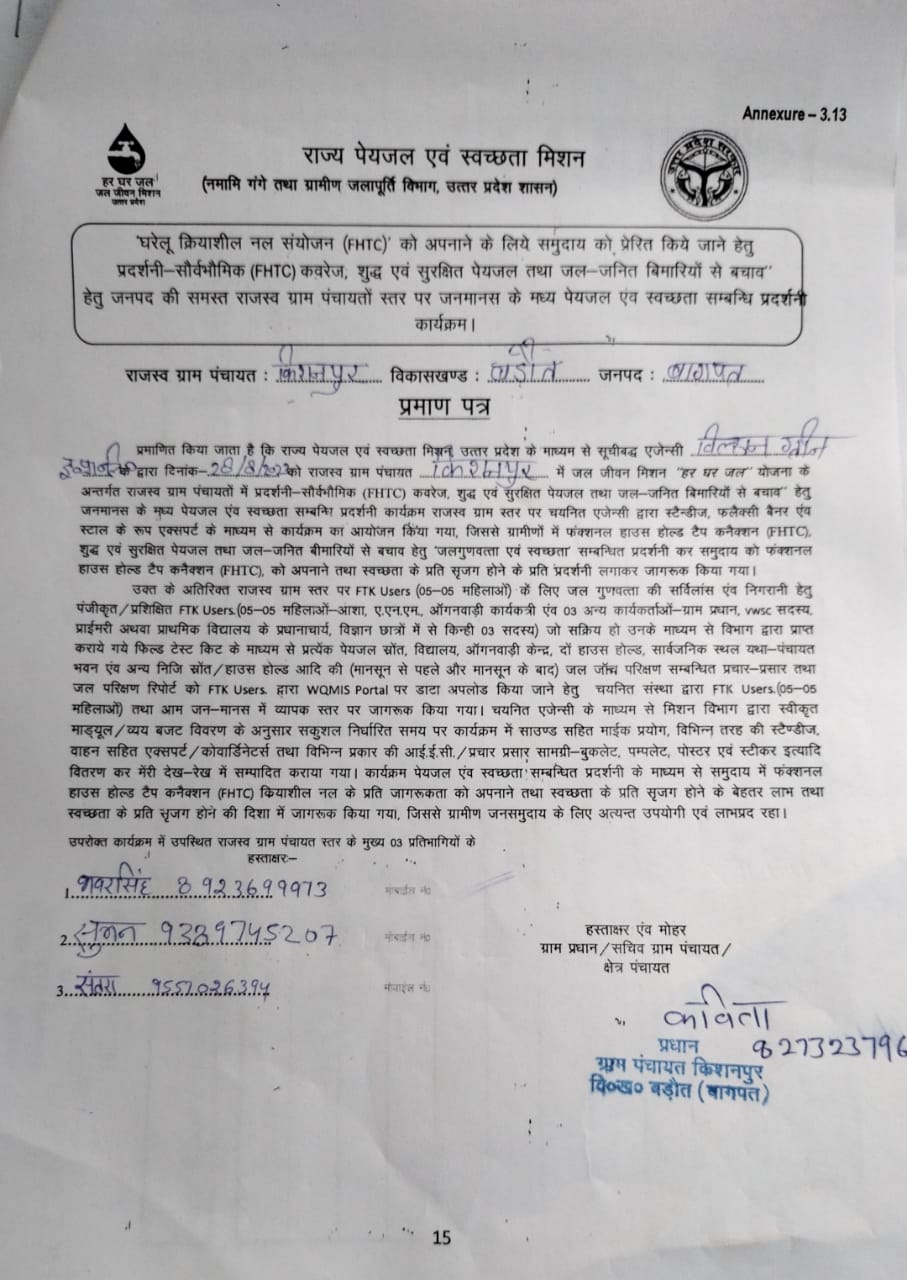 Annexure – 3.13
हर घर जल
जल जीवन मिशन
उत्तर प्रदेश
राज्य पेयजल एवं स्वच्छता मिशन
(नमामि गंगे तथा ग्रामीण जलापूर्ति विभाग, उत्तर प्रदेश शासन)
उत्तर प्रदेश सरकार
'घरेलू क्रियाशील नल संयोजन (FHTC)' को अपनाने के लिये समुदाय को प्रेरित किये जाने हेतु
प्रदर्शनी–सौर्वभौमिक (FHTC) कवरेज, शुद्ध एवं सुरक्षित पेयजल तथा जल–जनित बिमारियों से बचाव"
हेतु जनपद की समस्त राजस्व ग्राम पंचायतों स्तर पर जनमानस के मध्य पेयजल एंव स्वच्छता सम्बन्धि प्रदर्शनी
कार्यक्रम।
राजस्व ग्राम पंचायत : किशनपुर विकासखण्ड : बड़ौत जनपद : बागपत
प्रमाण पत्र
प्रमाणित किया जाता है कि राज्य पेयजल एवं स्वच्छता मिशन, उत्तर प्रदेश के माध्यम से सूचीबद्ध एजेन्सी ग्रीन
के द्वारा दिनांक– को राजस्व ग्राम पंचायत किशनपुर में जल जीवन मिशन "हर घर जल" योजना के
अन्तर्गत राजस्व ग्राम पंचायतों में प्रदर्शनी–सौर्वभौमिक (FHTC) कवरेज, शुद्ध एवं सुरक्षित पेयजल तथा जल–जनित बिमारियों से बचाव" हेतु
जनमानस के मध्य पेयजल एवं स्वच्छता सम्बन्धि प्रदर्शनी कार्यक्रम राजस्व ग्राम स्तर पर चयनित एजेन्सी द्वारा स्टैन्डीज, फलैक्सी बैनर एंव
स्टाल के रूप एक्सपर्ट के माध्यम से कार्यक्रम का आयोजन किया गया, जिससे ग्रामीणों में फंक्शनल हाउस होल्ड टैप कनैक्शन (FHTC),
शुद्ध एवं सुरक्षित पेयजल तथा जल–जनित बीमारियों से बचाव हेतु 'जलगुणवत्ता एवं स्वच्छता' सम्बन्धित प्रदर्शनी कर समुदाय को फंक्शनल
हाउस होल्ड टैप कनैक्शन (FHTC), को अपनाने तथा स्वच्छता के प्रति सृजग होने के प्रति प्रदर्शनी लगाकर जागरूक किया गया।
उक्त के अतिरिक्त राजस्व ग्राम स्तर पर FTK Users (05–05 महिलाओं) के लिए जल गुणवत्ता की सर्विलांस एंव निगरानी हेतु
पंजीकृत/प्रशिक्षित FTK Users.(05–05 महिलाओं–आशा, ए.एन.एम., ऑगनवाड़ी कार्यकत्री एंव 03 अन्य कार्यकर्ताओं–ग्राम प्रधान, vwsc सदस्य,
प्राईमरी अथवा प्राथमिक विद्यालय के प्रधानाचार्य, विज्ञान छात्रों में से किन्ही 03 सदस्य) जो सक्रिय हो उनके माध्यम से विभाग द्वारा प्राप्त
कराये गये फिल्ड टेस्ट किट के माध्यम से प्रत्येक पेयजल स्रोंत, विद्यालय, ऑगनवाड़ी केन्द्र, दों हाउस होल्ड, सार्वजनिक स्थल यथा–पंचायत
भवन एंव अन्य निजि स्रोंत/हाउस होल्ड आदि की (मानसून से पहले और मानसून के बाद) जल जॉच परिक्षण सम्बन्धित प्रचार–प्रसार तथा
जल परिक्षण रिपोर्ट को FTK Users. द्वारा WQMIS Portal पर डाटा अपलोड किया जाने हेतु चयनित संस्था द्वारा FTK Users.(05–05
महिलाओं) तथा आम जन–मानस में व्यापक स्तर पर जागरूक किया गया। चयनित एजेन्सी के माध्यम से मिशन विभाग द्वारा स्वीकृत
माड्यूल/व्यय बजट विवरण के अनुसार सकुशल निर्धारित समय पर कार्यक्रम में साउण्ड सहित माईक प्रयोग, विभिन्न तरह की स्टैण्डीज,
वाहन सहित एक्सपर्ट/कोवार्डिनेटर्स तथा विभिन्न प्रकार की आई.ई.सी./प्रचार प्रसार सामग्री–बुकलेट, पम्पलेट, पोस्टर एवं स्टीकर इत्यादि
वितरण कर मेंरी देख–रेख में सम्पादित कराया गया। कार्यक्रम पेयजल एंव स्वच्छता सम्बन्धित प्रदर्शनी के माध्यम से समुदाय में फंक्शनल
हाउस होल्ड टैप कनैक्शन (FHTC) कियाशील नल के प्रति जागरूकता को अपनाने तथा स्वच्छता के प्रति सृजग होने के बेहतर लाभ तथा
स्वच्छता के प्रति सृजग होने की दिशा में जागरूक किया गया, जिससे ग्रामीण जनसमुदाय के लिए अत्यन्त उपयोगी एवं लाभप्रद रहा।
उपरोक्त कार्यक्रम में उपस्थित राजस्व ग्राम पंचायत स्तर के मुख्य 03 प्रतिभागियों के
हस्ताक्षर:–
1. 8923699973 मोबाईल नं0
2. सुमन 9389745207 मोबाईल नं0
3. संतरा 9557026394 मोबाईल नं0
हस्ताक्षर एंव मोहर
ग्राम प्रधान/सचिव ग्राम पंचायत/
क्षेत्र पंचायत
कविता
प्रधान 827323796
ग्राम पंचायत किशनपुर
वि०ख० बड़ौत (बागपत)
15